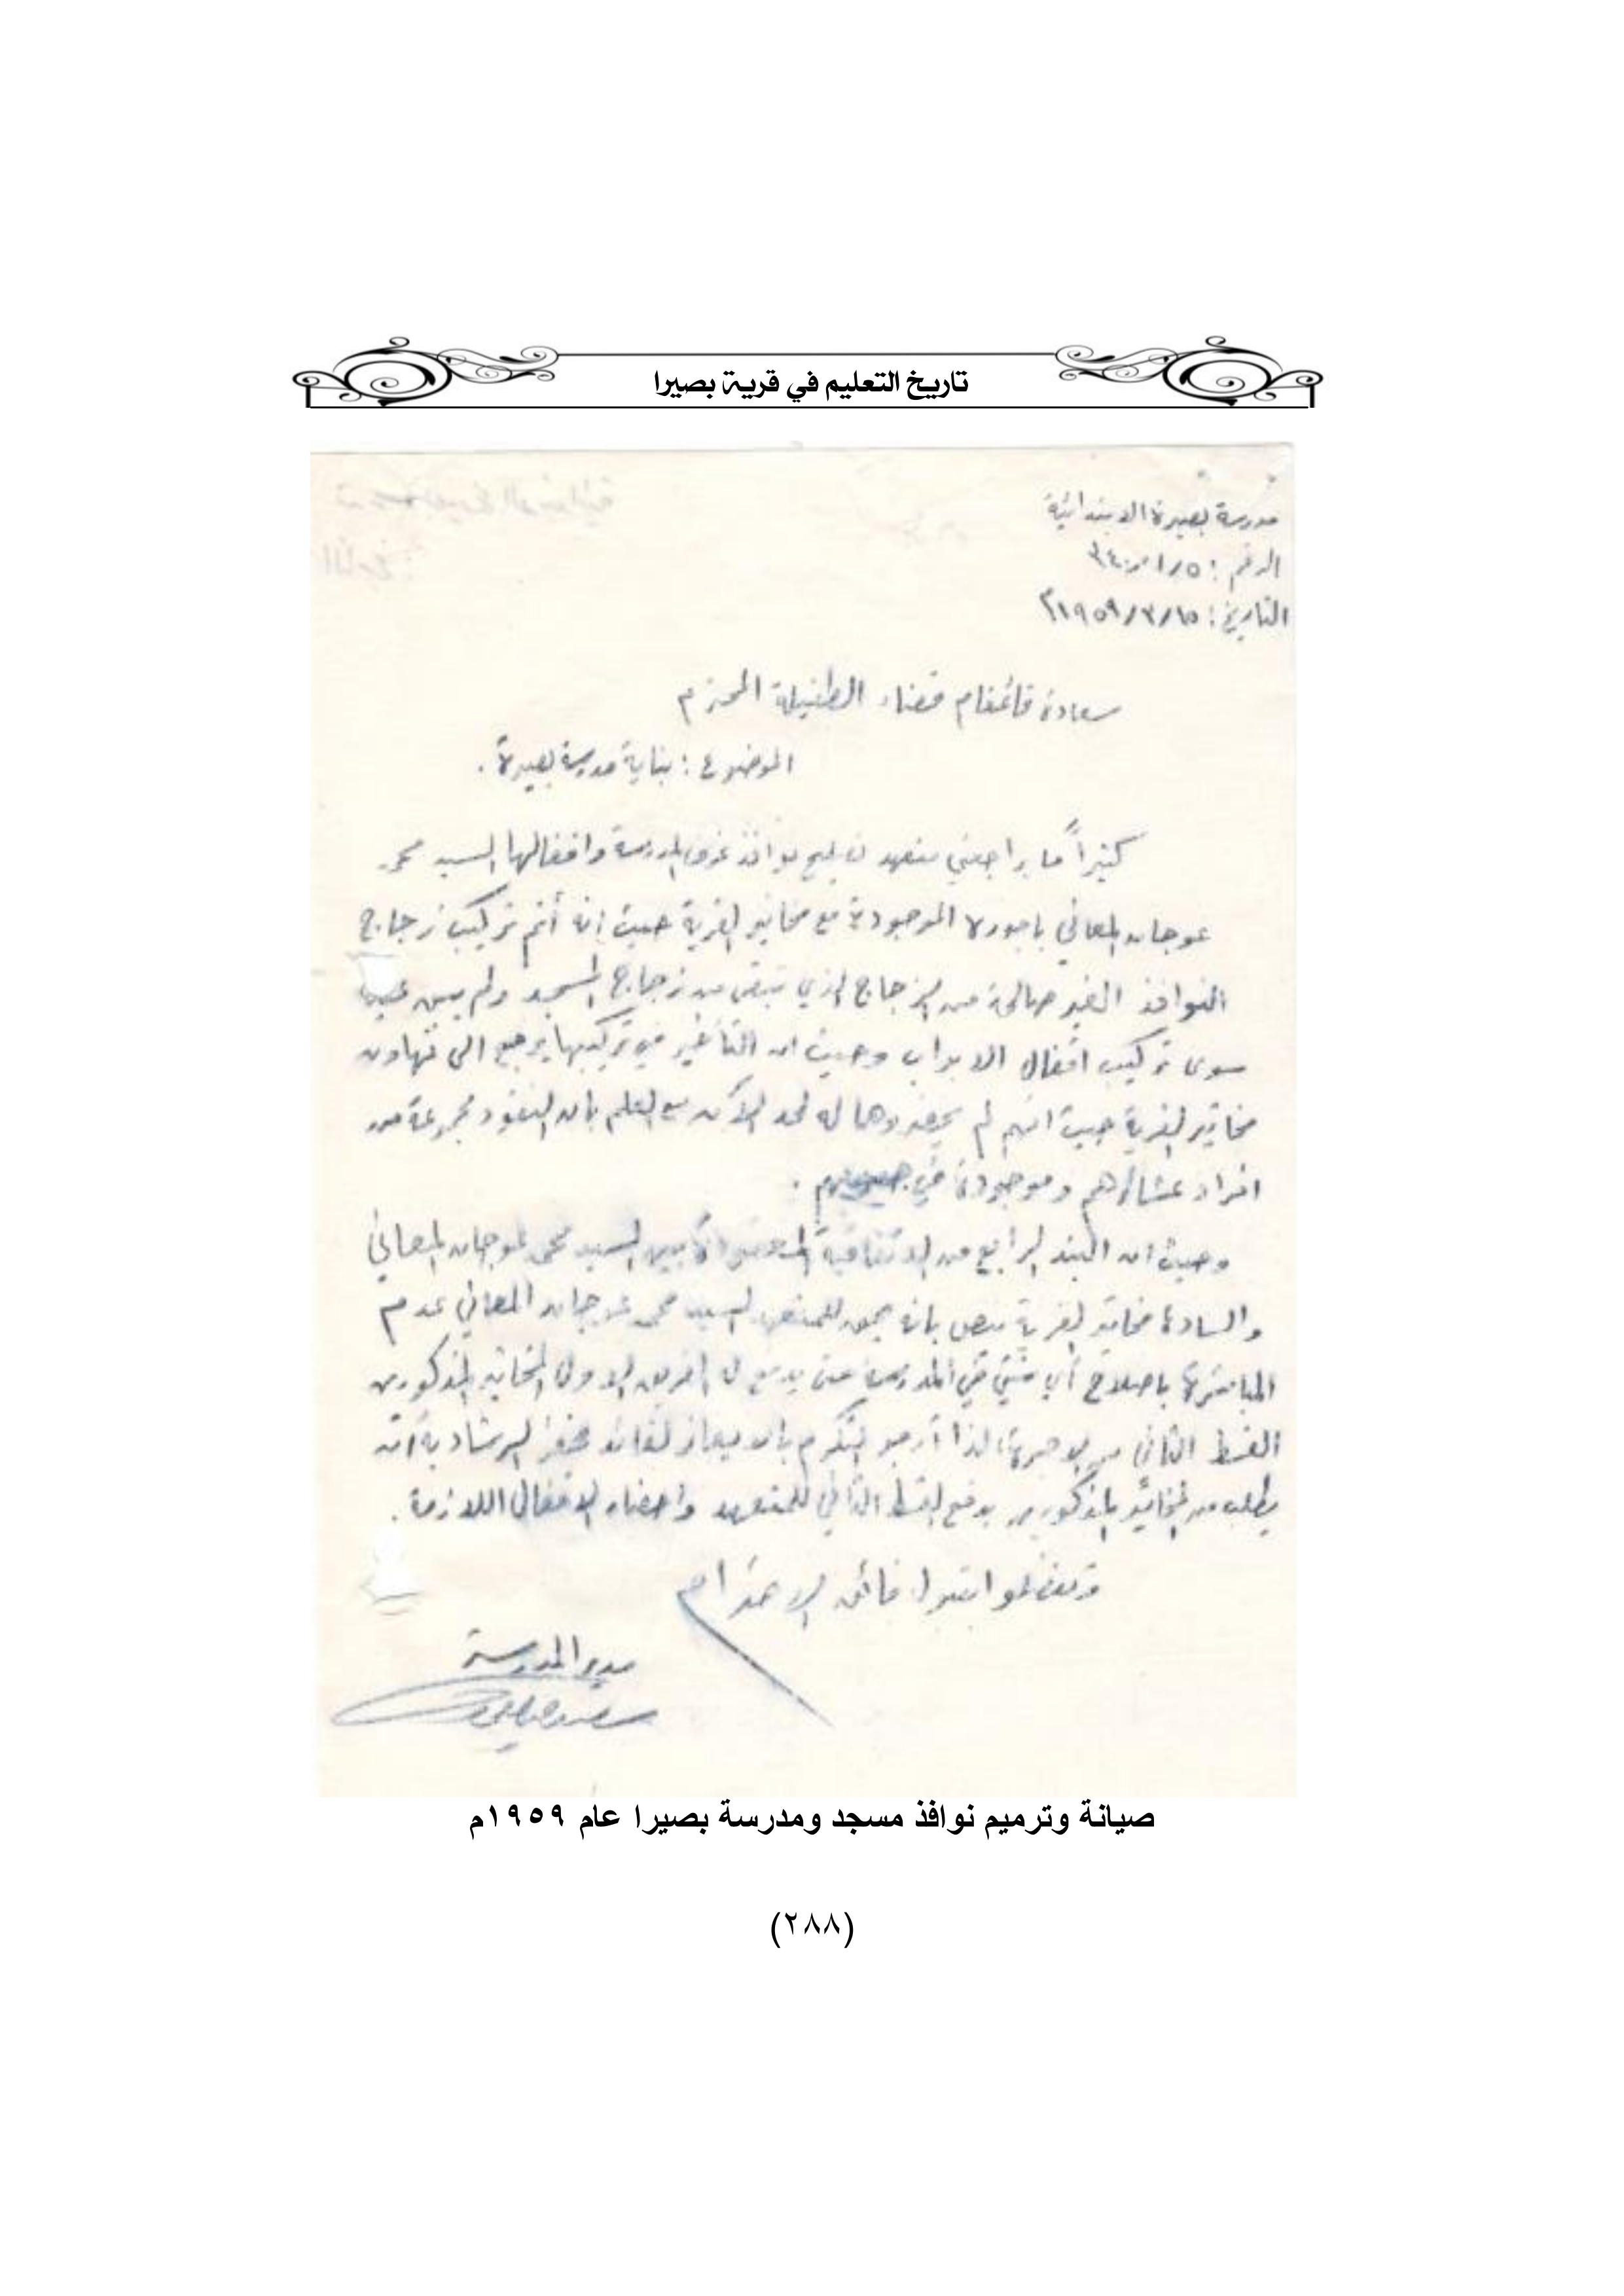 تاريخ التعليم في قرية بصيرا
مدرسة بصيرة الابتدائية
الرقم :
التاريخ : ١٩٥٩/٣/١٥م
سعادة قائمقام قضاء الطفيلة المحترم
الموضوع : بناية مدرسة بصيرة .
كثيراً ما يراجعني متعهد نوافذ غرف المدرسة واقفالها السيد محمد
عوجان المعاني باجوره الموجودة مع مخاتير القرية حيث إنه أتم تركيب زجاج
النوافذ الغير صالحة من الزجاج الذي تبقى من زجاج المسجد ولم يبق عليه
سوى تركيب اقفال الابواب وحيث ان التأخير في تركيبها يرجع الى تهاون
مخاتير القرية حيث انهم لم يحضروها له لحد الآن مع العلم بان النقود مجموعة من
افراد عشائرهم وموجودة في .
وحيث ان البند الرابع من الاتفاقية بين السيد محمد عوجان المعاني
والسادة مخاتير القرية ينص بانه يحق للمتعهد السيد محمد عوجان المعاني عدم
المباشرة باصلاح أي شيء في المدرسة حتى يدفع له الفريق الاول المخاتير المذكورين
القسط الثاني من الاجرة لذا أرجو التكرم بان يعاز لقائد مخفر الرشادية ان
يطلب من المخاتير المذكورين بدفع القسط الثاني للمتعهد واحضار الاقفال اللازمة .
وتفضلوا بقبول فائق الاحترام
مدير المدرسة
صيانة وترميم نوافذ مسجد ومدرسة بصيرا عام ١٩٥٩م
(٢٨٨)